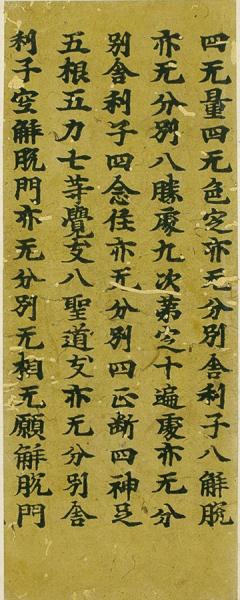 四无量四无色定亦无分别舍利子八解脱
亦无分别八勝處九次第定十遍處亦无分
别舍利子四念住亦无分别四正断四神足
五根五力七等覺支八聖道支亦无分别舍
利子空解脱門亦无分别无相无願解脱門